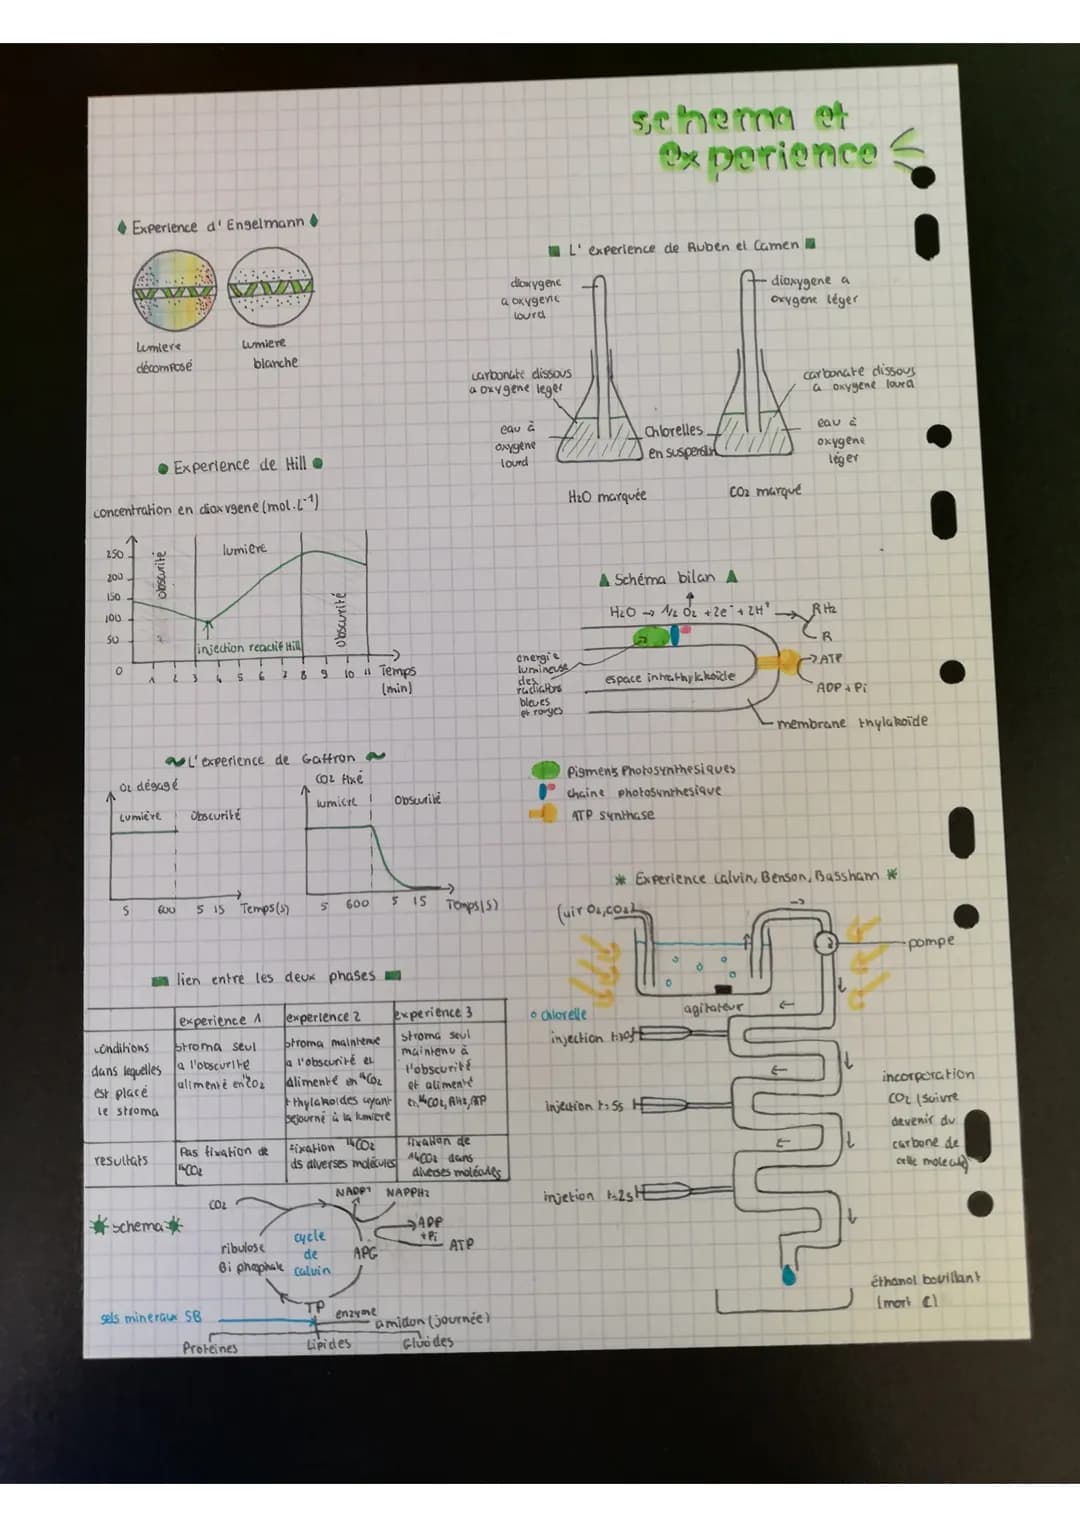 schema et
experience
Experience d' Engelmann
Lumiere
décomposé
Lumiere
blanche
L' experience de Ruben et Camen
dioxygene
a oxygene
lourd
dioxygene a
oxygene léger
carbonate dissous
a oxygene leger
carbonate dissous
a oxygene lourd
eau à
oxygene
lourd
Chlorelles
en suspensin
eau à
oxygene
léger
H2O marquée
CO2 marqué
Experience de Hill
concentration en dioxygene (mol.L⁻¹)
250
200
150
100
50
0
obscurité
lumière
obscurité
injection reactif Hill
1 2 3 4 5 6 7 8 9 10 11 Temps
(min)
Schéma bilan
H2O → 1/2 O2 + 2e⁻ + 2H⁺
RH2
R
ATP
ADP + Pi
energie
lumineuse
des
radiations
bleues
et rouges
espace intrathylakoïde
membrane thylakoïde
Pigments Photosynthesiques
chaine photosynthesique
ATP synthase
L' experience de Gaffron
O2 dégagé
Lumière
Obscurité
5 600 5 15 Temps(s)
CO2 fixé
lumière
Obscurité
5 600 5 15 Temps(s)
lien entre les deux phases
experience 1
experience 2
experience 3
conditions
dans lequelles
est placé
le stroma
stroma seul
a l'obscurite
alimenté en ¹⁴CO2
stroma maintenue
a l'obscurité et
alimenté en ¹⁴CO2
+ thylakoides ayant
sejourné à la lumiere
stroma seul
maintenu à
l'obscurité
et alimenté
en ¹⁴CO2, RH2, ATP
resultats
Pas fixation de
¹⁴CO2
fixation ¹⁴CO2
ds diverses molécules
fixation de
¹⁴CO2 dans
diverses molécules
schema
CO2
NADP⁺
NAPPH2
ADP
+Pi
ATP
APG
cycle
de
calvin
ribulose
Bi phosphate
TP
sels mineraux SB
enzyme
amidon (journée)
Proteines
Lipides
Gluòdes
Experience calvin, Benson, Bassham
(air O2, CO2)
pompe
agitateur
chlorelle
injection t=30s
injection t=5s
injetion t=2s
incorporation
CO2 (suivre
devenir du
carbone de
cette molecule)
éthanol bouillant
(mort C)